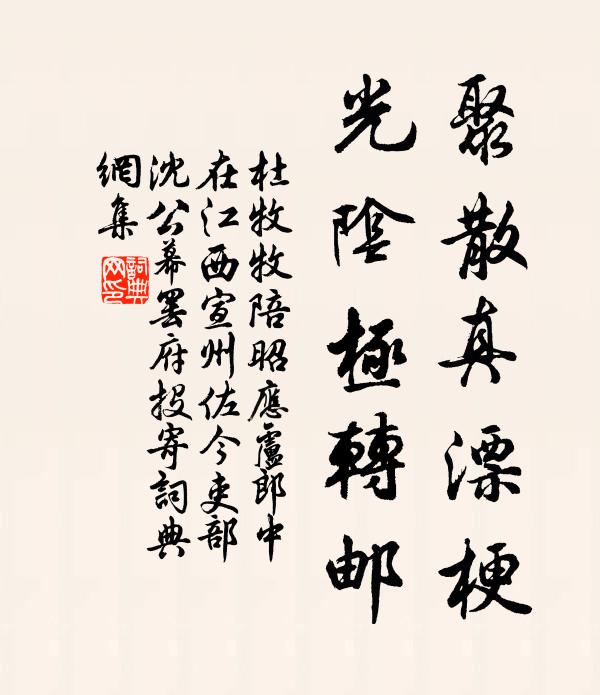 聚散真漂梗
光陰極轉邮
杜牧牧陪昭應盧郎中
在江西宣州佐今吏部
沈公幕罷府投寄詞典
網集
詞典
网印